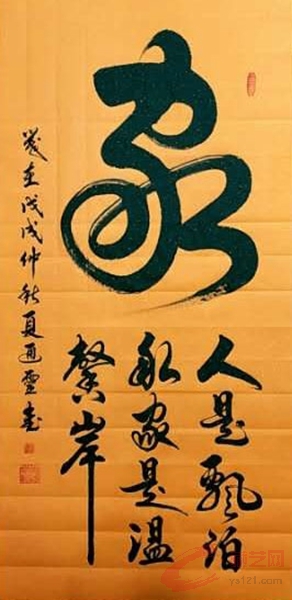 家
人是飄泊
船家是温
馨岸
歲在戊戌仲秋夏
艺网
ys121.com